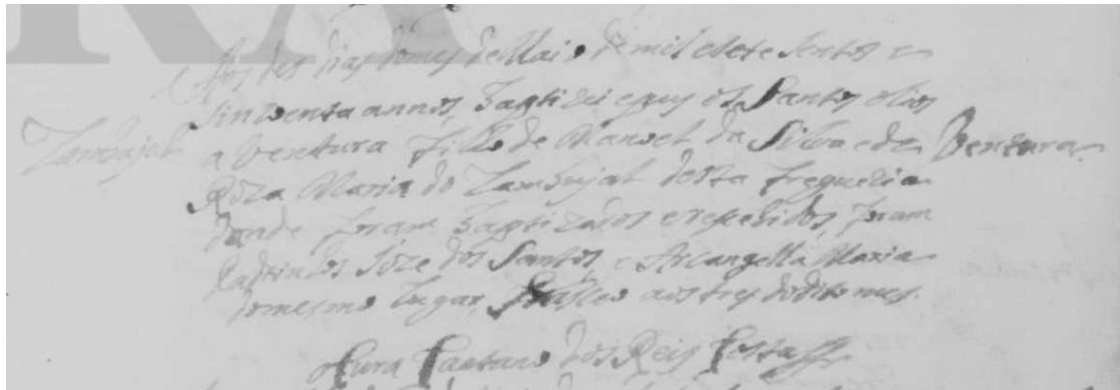 Aos des dias do mes de Maio de mil e sete sentos e
sinco enta annos, bagtizei e pus os Santos olios
Zambujal
a Ventura filho de Manoel da Silva e de
Ventura
Roza Maria do Zambujal desta freguezia
donde foram bagtizados e resebidos, foram
Padrinhos Joze dos Santos, e Arcangella Maria
do mesmo lugar, nasceo aos tres do dito mes.
o Cura Caetano dos Reis Costa